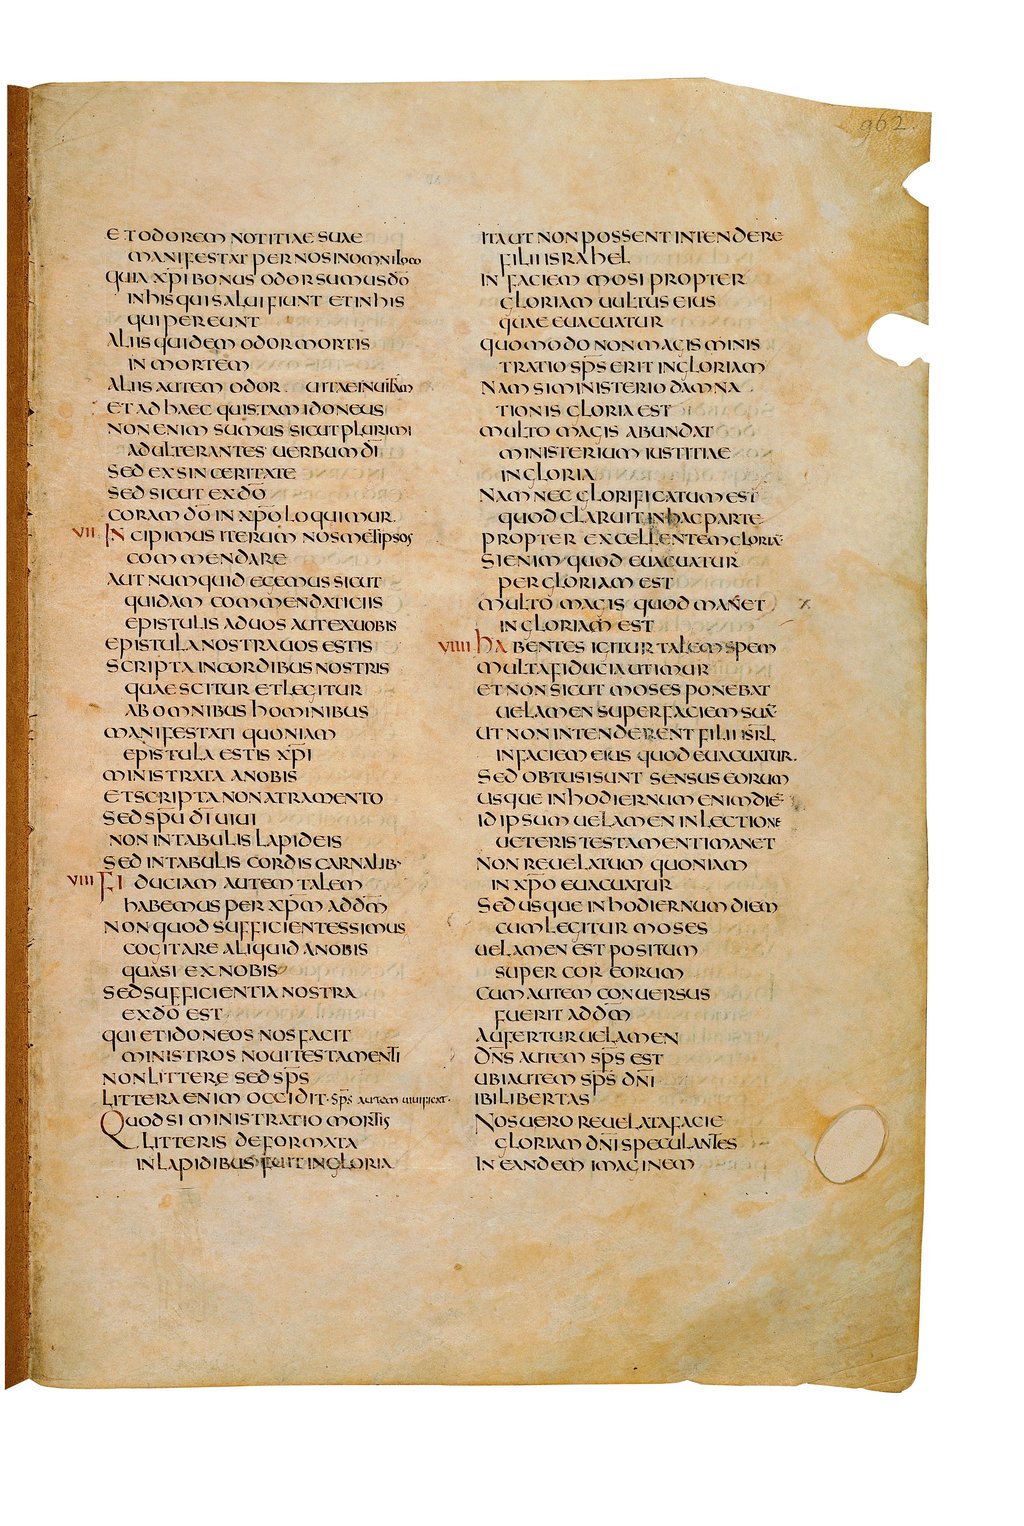 962.
ET ODOREM NOTITIAE SUAE
MANIFESTAT PER NOS IN OMNI LOCO
QUIA XP̄I BONUS ODOR SUMUS DŌ
IN HIS QUI SALUI FIUNT ET IN HIS
QUI PEREUNT
ALIIS QUIDEM ODOR MORTIS
IN MORTEM
ALIIS AUTEM ODOR UITAE IN UITAM
ET AD HAEC QUIS TAM IDONEUS
NON ENIM SUMUS SICUT PLURIMI
ADULTERANTES UERBUM DĪ
SED EX SINCERITATE
SED SICUT EX DŌ
CORAM DŌ IN XP̄O LOQUIMUR
VII INCIPIMUS ITERUM NOSMETIPSOS
COMMENDARE
AUT NUMQUID EGEMUS SICUT
QUIDAM COMMENDATICIIS
EPISTULIS AD UOS AUT EX UOBIS
EPISTULA NOSTRA UOS ESTIS
SCRIPTA IN CORDIBUS NOSTRIS
QUAE SCITUR ET LEGITUR
AB OMNIBUS HOMINIBUS
MANIFESTATI QUONIAM
EPISTULA ESTIS XP̄I
MINISTRATA A NOBIS
ET SCRIPTA NON ATRAMENTO
SED SPŪ DĪ UIUI
NON IN TABULIS LAPIDEIS
SED IN TABULIS CORDIS CARNALIB·
VIII FIDUCIAM AUTEM TALEM
HABEMUS PER XP̄M AD DM̄
NON QUOD SUFFICIENTES SIMUS
COGITARE ALIQUID A NOBIS
QUASI EX NOBIS
SED SUFFICIENTIA NOSTRA
EX DŌ EST
QUI ET IDONEOS NOS FACIT
MINISTROS NOUI TESTAMENTI
NON LITTERE SED SP̄S
LITTERA ENIM OCCIDIT· SP̄S AUTEM UIUIFICAT·
QUOD SI MINISTRATIO MORTIS
LITTERIS DEFORMATA
IN LAPIDIBUS FUIT IN GLORIA
ITA UT NON POSSENT INTENDERE
FILII ISRAHEL
IN FACIEM MOSI PROPTER
GLORIAM UULTUS EIUS
QUAE EUACUATUR
QUOMODO NON MAGIS MINIS
TRATIO SP̄S ERIT IN GLORIAM
NAM SI MINISTERIO DAMNA
TIONIS GLORIA EST
MULTO MAGIS ABUNDAT
MINISTERIUM IUSTITIAE
IN GLORIA
NAM NEC GLORIFICATUM EST
QUOD CLARUIT IN HAC PARTE
PROPTER EXCELLENTEM GLORIĀ·
SI ENIM QUOD EUACUATUR
PER GLORIAM EST
MULTO MAGIS QUOD MANET
IN GLORIAM EST
VIIII HABENTES IGITUR TALEM SPEM
MULTA FIDUCIA UTIMUR
ET NON SICUT MOSES PONEBAT
UELAMEN SUPER FACIEM SUĀ·
UT NON INTENDERENT FILII ISRL̄
IN FACIEM EIUS QUOD EUACUATUR·
SED OBTUSI SUNT SENSUS EORUM
USQUE IN HODIERNUM ENIM DIĒ·
ID IPSUM UELAMEN IN LECTIONE
UETERIS TESTAMENTI MANET
NON REUELATUM QUONIAM
IN XP̄O EUACUATUR
SED USQUE IN HODIERNUM DIEM
CUM LEGITUR MOSES
UELAMEN EST POSITUM
SUPER COR EORUM
CUM AUTEM CONUERSUS
FUERIT AD DM̄
AUFERTUR UELAMEN
DN̄S AUTEM SP̄S EST
UBI AUTEM SP̄S DN̄I
IBI LIBERTAS
NOS UERO REUELATA FACIE
GLORIAM DN̄I SPECULANTES
IN EANDEM IMAGINEM